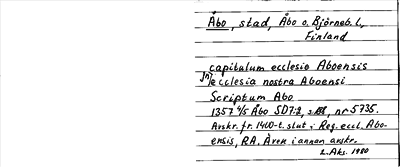 Åbo, stad, Åbo o. Björneb. l,
Finland
capitulum ecclesie Aboensis
in ecclesia nostra Aboensi
Scriptum Abo
1357 6/5 Åbo SD 7:2, nr 5735.
Avskr. fr. 1400-t. slut i Reg. eccl. Abo-
ensis, RA. Även i annan avskr.
1980